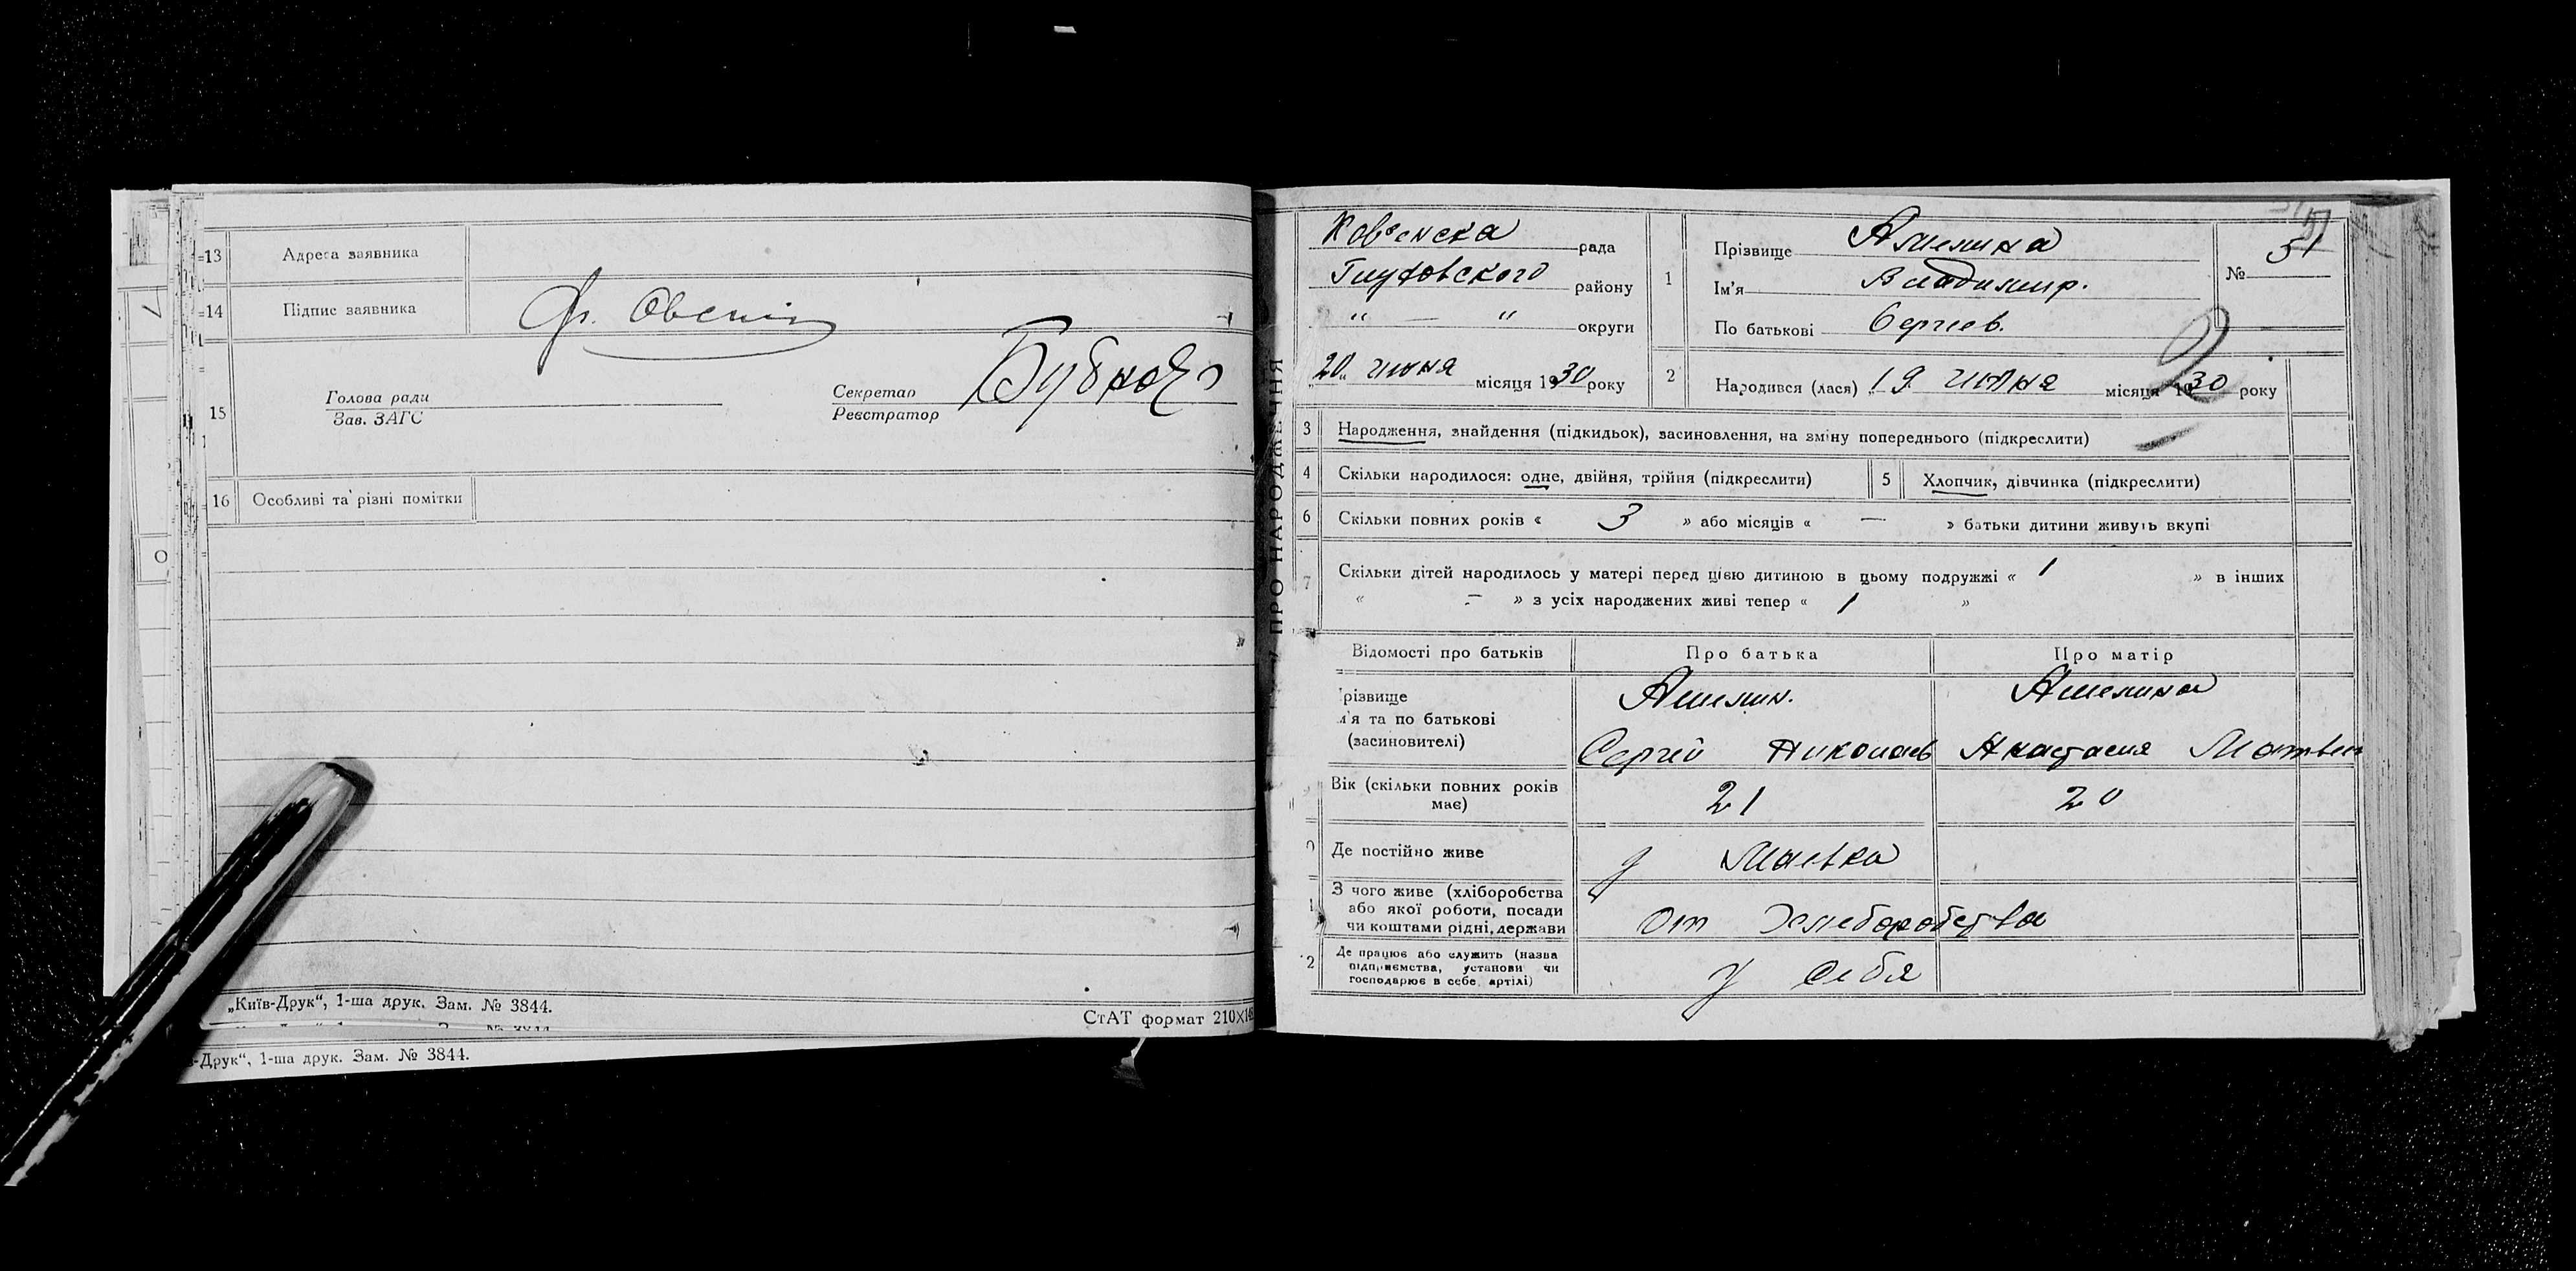 13 Адреса заявника
14 Підпис заявника
15 Голова ради
Зав. ЗАГС
Секретар
Реєстратор
16 Особливі та різні помітки
„Київ-Друк“, 1-ша друк. Зам. № 3844.
СтАТ формат 210×1
-Друк“, 1-ша друк. Зам. № 3844.
ПРО НАРОДЖЕННЯ
рада
району
“ — “ округи
20 июня місяця 1930 року
1 Прізвище Амелина
Ім'я Владимир.
По батькові Сергеев.
№ 51
2 Народився (лася) 19 июня місяця 1930 року
3 Народження, знайдення (підкидьок), засиновлення, на зміну попереднього (підкреслити)
4 Скільки народилося: одне, двійня, трійня (підкреслити)
5 Хлопчик, дівчинка (підкреслити)
6 Скільки повних років « 3 » або місяців « — » батьки дитини живуть вкупі
7 Скільки дітей народилось у матері перед цією дитиною в цьому подружжі « 1 » в інших
« — » з усіх народжених живі тепер « 1 »
Відомості про батьків Про батька Про матір
різвище Амелин. Амелина
м'я та по батькові
(засиновителі) Сергей Николаев Анастасия Матвее
Вік (скільки повних років
має) 21 20
Де постійно живе Маевка
З чого живе (хліборобства
або якої роботи, посади
чи коштами рідні, держави От Хлеборобства
2 Де працює або служить (назва
підприємства, установи чи
господарює в себе, артілі) у себя